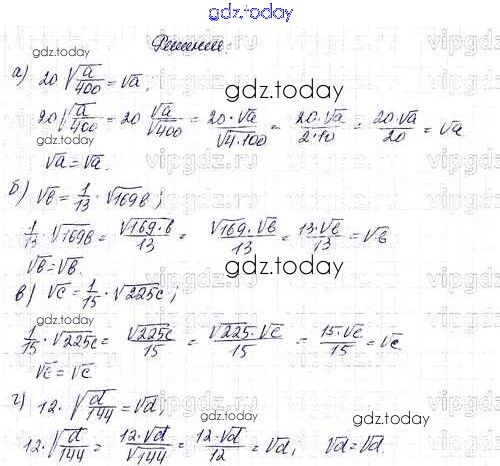 gdz.today
Решение:
gdz.today
а) 20√(a/400) = √a;
gdz.today
20√(a/400) = 20 √a/√400 = 20·√a/√(4·100) = 20·√a/(2·10) = 20·√a/20 = √a
√a = √a.
б) √b = 1/13 · √169b;
1/13 · √169b = √(169·b)/13 = √169·√b/13 = 13·√b/13 = √b
√b = √b.
gdz.today
в) √c = 1/15 · √225c;
gdz.today
1/15 · √225c = √225c/15 = √225·√c/15 = 15·√c/15 = √c
√c = √c
г) 12·√(d/144) = √d;
gdz.today
gdz.today
12·√(d/144) = 12·√d/√144 = 12·√d/12 = √d, √d = √d.